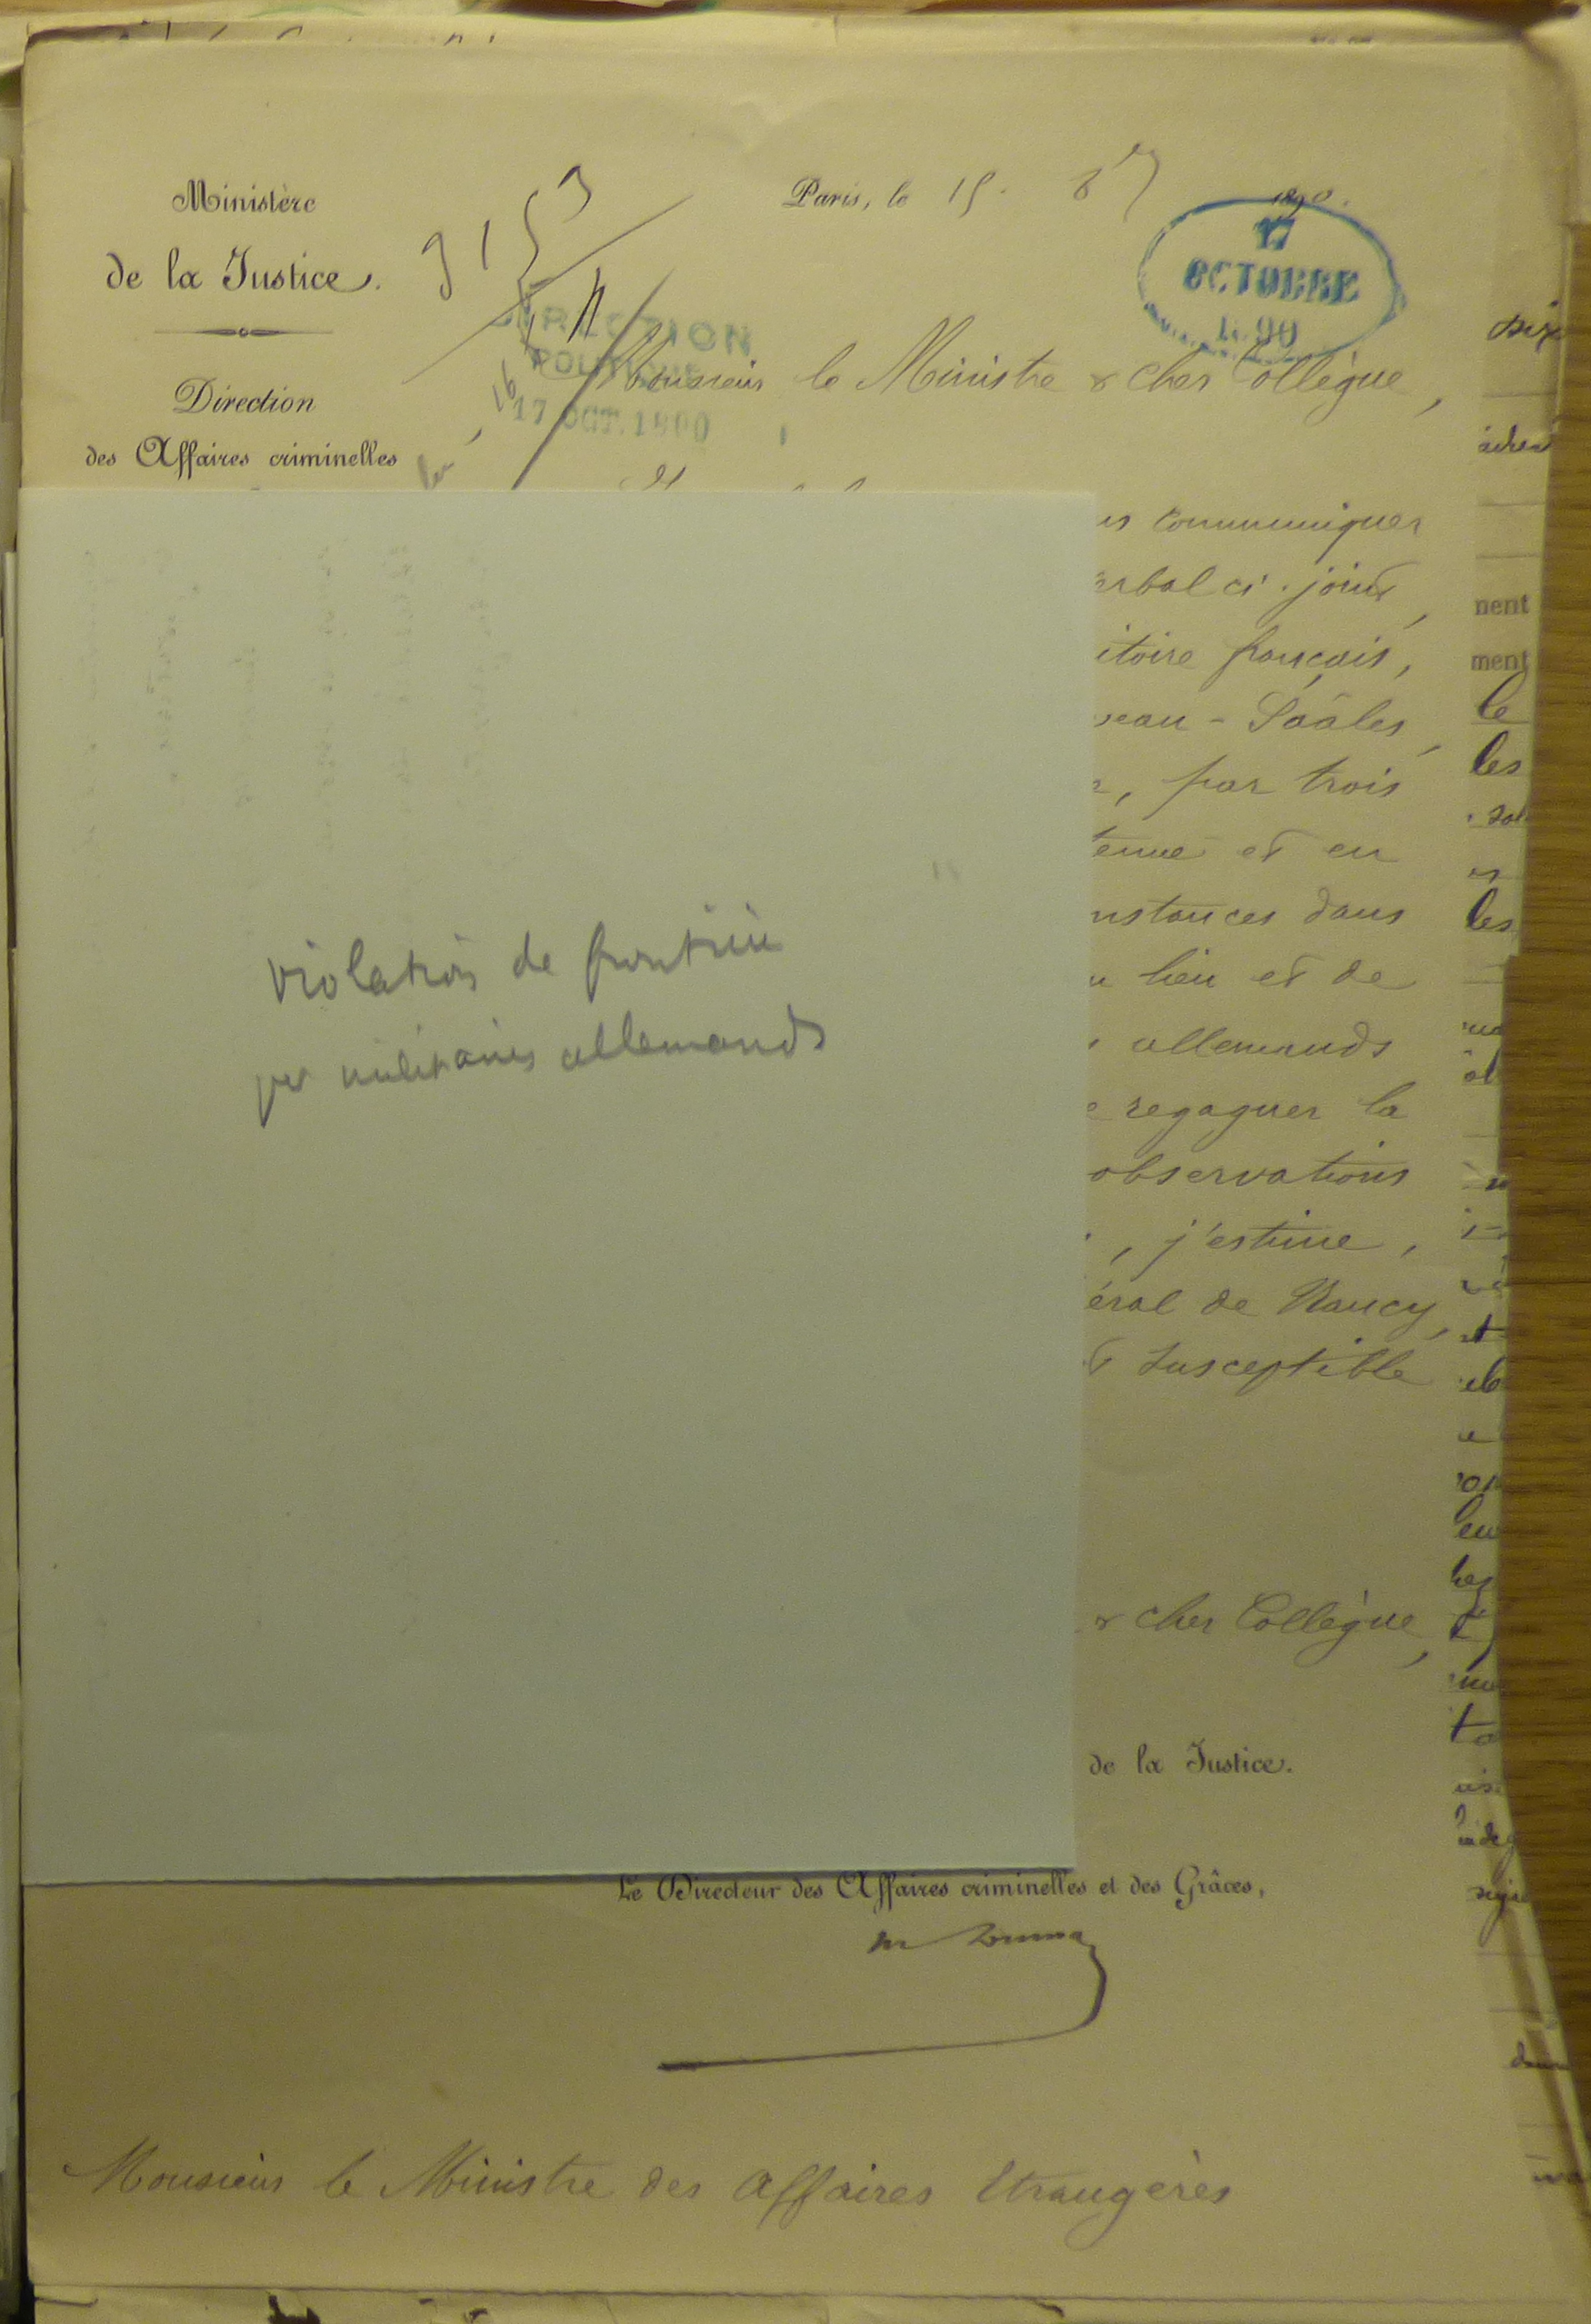 Ministère
de la Justice.
Direction
des Affaires criminelles
3153
Paris, le 15. 8bre 1890.
17
OCTOBRE
1890
DIRECTION
POLITIQUE
17 OCT. 1890
Monsieur le Ministre & cher Collègue,
us communiquer
erbal ci-joint,
itoire français,
veau - Saâles,
, par trois
tenue et en
nstances dans
u lieu et de
allemands
e regagner la
observations
, j'estime,
éral de Nancy,
susceptible
& cher Collègue,
de la Justice.
Le Directeur des Affaires criminelles et des Grâces,
Monsieur le Ministre des Affaires Etrangères
violation de frontière
par militaires allemands
nent
ment
le
les
les